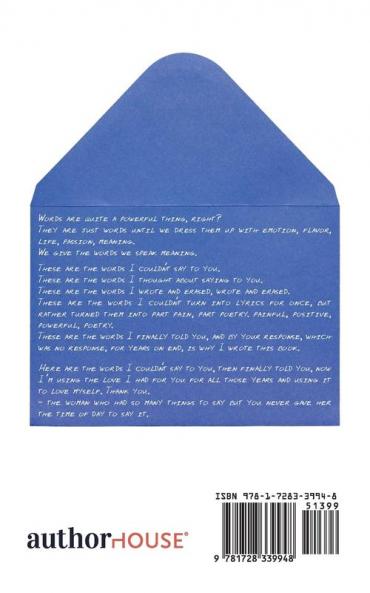 WORDS ARE QUITE A POWERFUL THING, RIGHT?
THEY ARE JUST WORDS UNTIL WE DRESS THEM UP WITH EMOTION, FLAVOR,
LIFE, PASSION, MEANING.
WE GIVE THE WORDS WE SPEAK MEANING.
THESE ARE THE WORDS I COULDN'T SAY TO YOU.
THESE ARE THE WORDS I THOUGHT ABOUT SAYING TO YOU.
THESE ARE THE WORDS I WROTE AND ERASED, WROTE AND ERASED.
THESE ARE THE WORDS I COULDN'T TURN INTO LYRICS FOR ONCE, BUT
RATHER TURNED THEM INTO PART PAIN, PART POETRY. PAINFUL, POSITIVE,
POWERFUL, POETRY.
THESE ARE THE WORDS I FINALLY TOLD YOU, AND BY YOUR RESPONSE, WHICH
WAS NO RESPONSE, FOR YEARS ON END, IS WHY I WROTE THIS BOOK.
HERE ARE THE WORDS I COULDN'T SAY TO YOU, THEN FINALLY TOLD YOU, NOW
I'M USING THE LOVE I HAD FOR YOU FOR ALL THOSE YEARS AND USING IT
TO LOVE MYSELF. THANK YOU.
- THE WOMAN WHO HAD SO MANY THINGS TO SAY BUT YOU NEVER GAVE HER
THE TIME OF DAY TO SAY IT.
ISBN 978-1-7283-3994-8
51399
9 781728 339948
authorHOUSE®